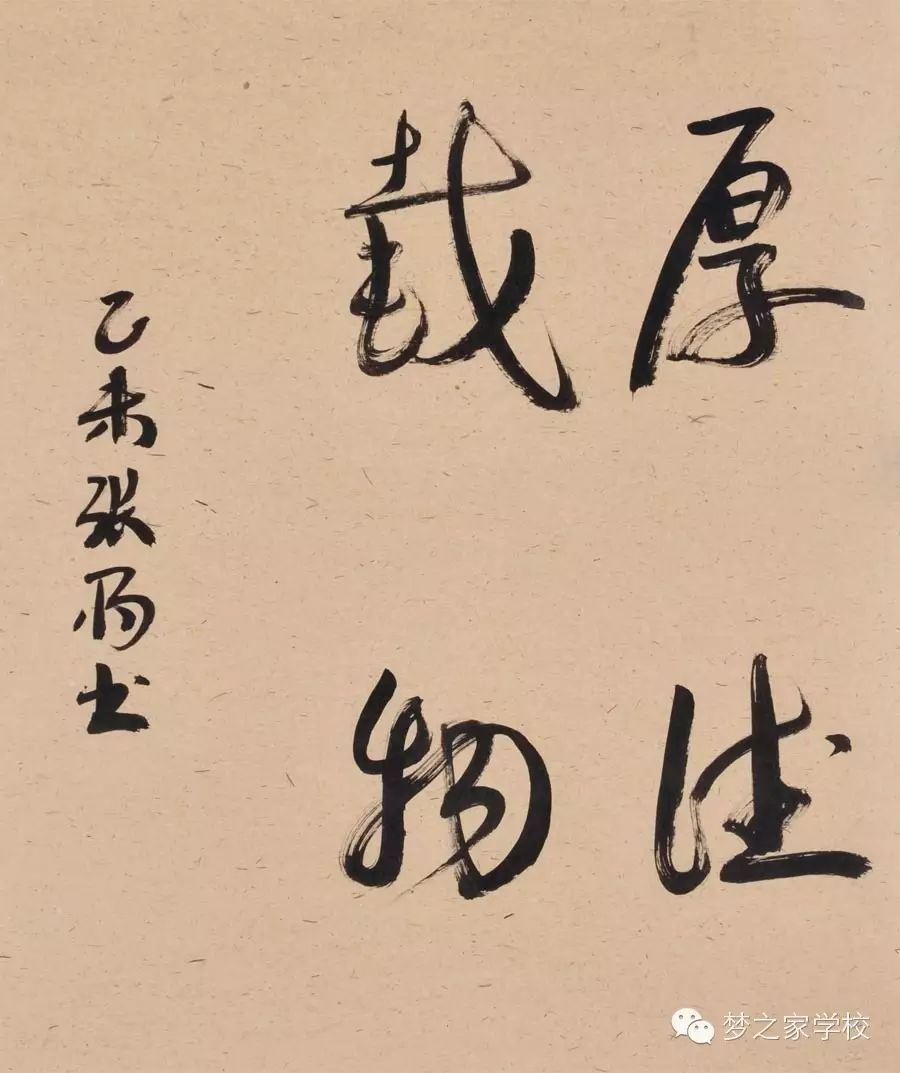 厚德
载物
乙未张旸书
梦之家学校